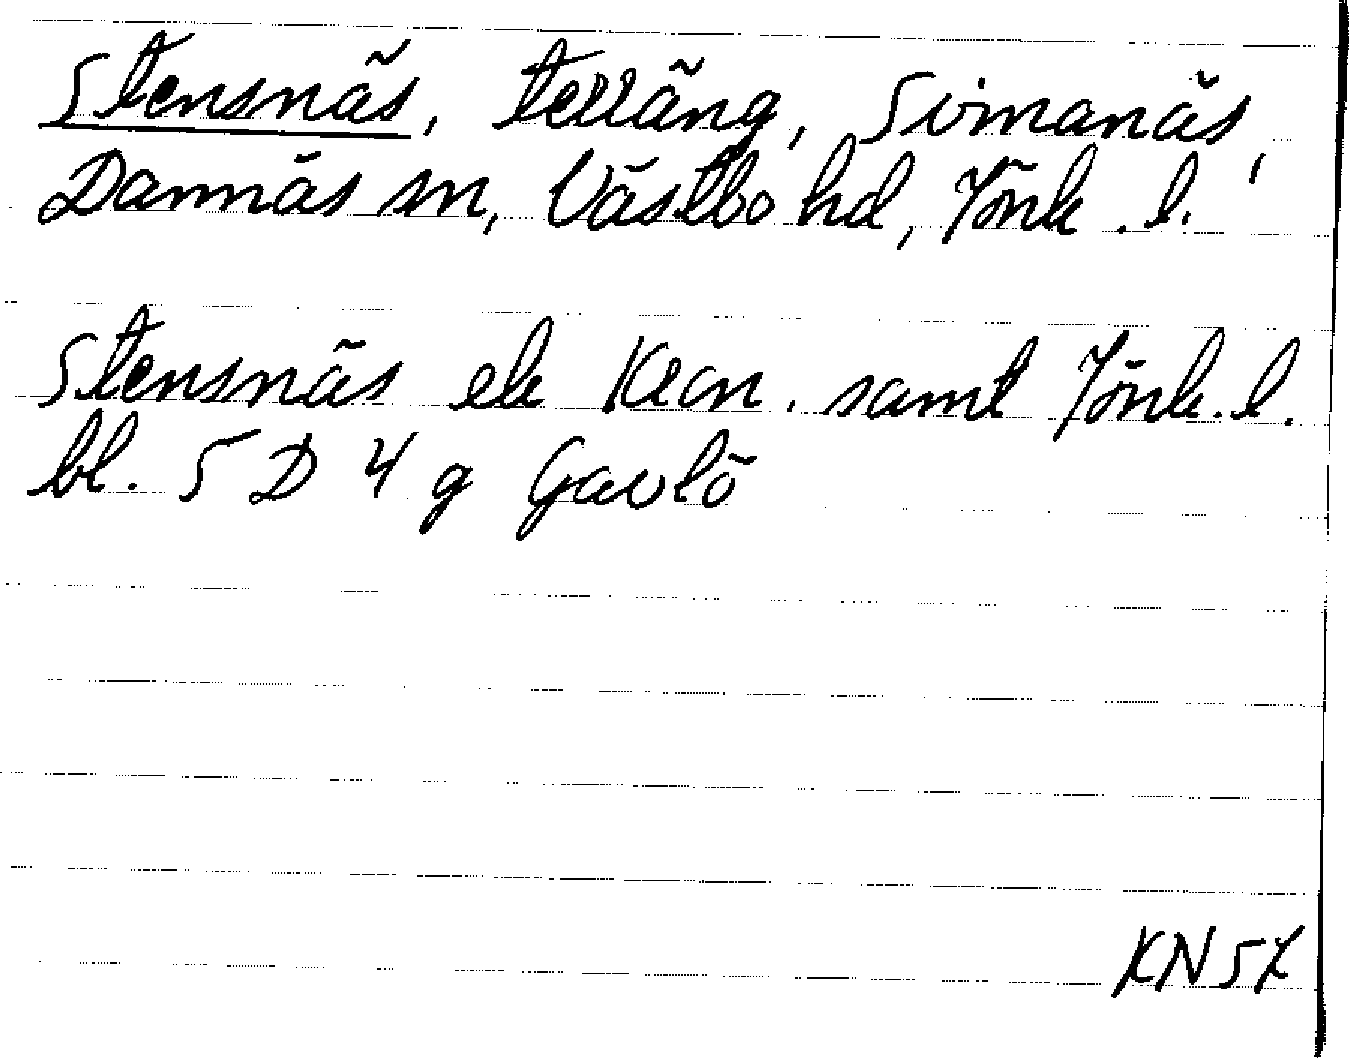 Stensnäs, terräng, Simanäs,
Dannäs sn, Västbo hd, Jönk. l.
Stensnäs ek Kron. samt Jönk. l.
bl. 5 D 4 g Gavlö
KN 57